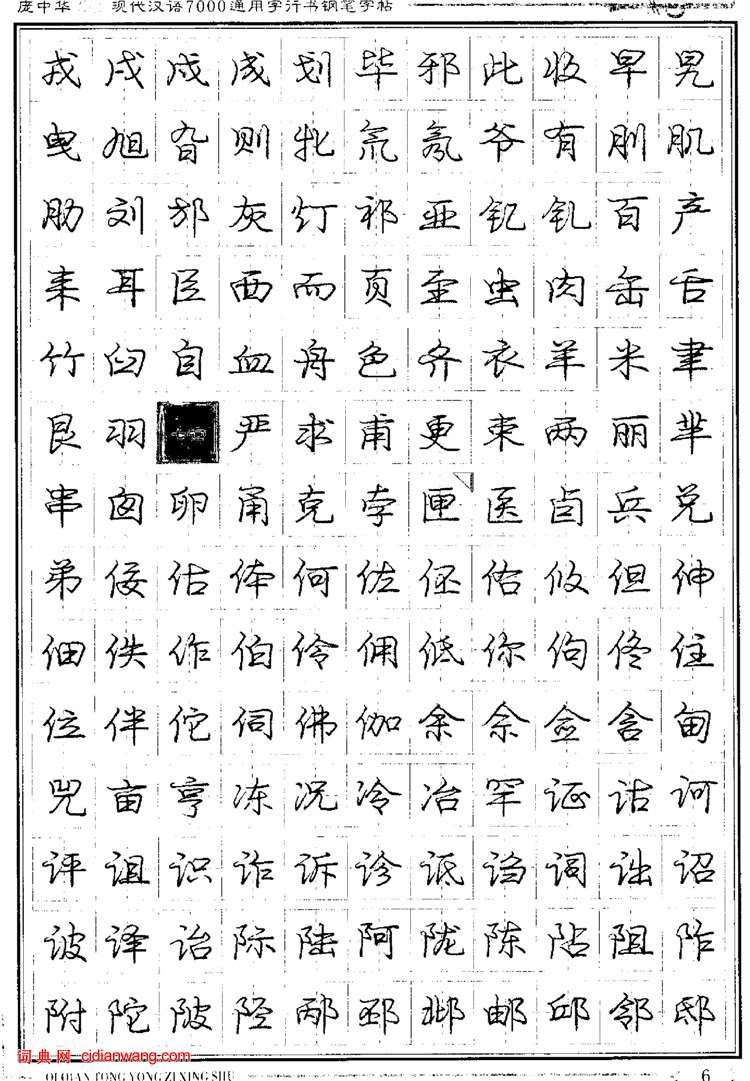 庞中华 现代汉语7000通用字行书钢笔字帖
戎 戌 戍 成 划 毕 邪 此 收 早 旯
曳 旭 旮 则 牝 氘 氖 爷 有 刖 肌
肋 刘 邬 灰 灯 祁 亚 钇 钆 百 产
耒 耳 臣 西 而 页 至 虫 肉 缶 舌
竹 臼 自 血 舟 色 齐 衣 羊 米 聿
艮 羽 七画 严 求 甫 更 束 两 丽 芈
串 囱 卵 甬 克 孛 匣 医 卣 兵 兑
弟 佞 估 体 何 佐 伾 佑 攸 但 伸
佃 佚 作 伯 伶 佣 低 你 佝 佟 住
位 伴 佗 伺 佛 伽 余 佘 佥 含 甸
兕 亩 亨 冻 况 冷 冶 罕 证 诂 诃
评 诅 识 诈 诉 诊 诋 诌 词 诎 诏
诐 译 诒 际 陆 阿 陇 陈 阽 阻 阼
附 陀 陂 陉 邴 邳 邶 邮 邱 邻 邸
词典网-cidianwang.com
QI QIAN TONG YONG ZI XING SHU
6